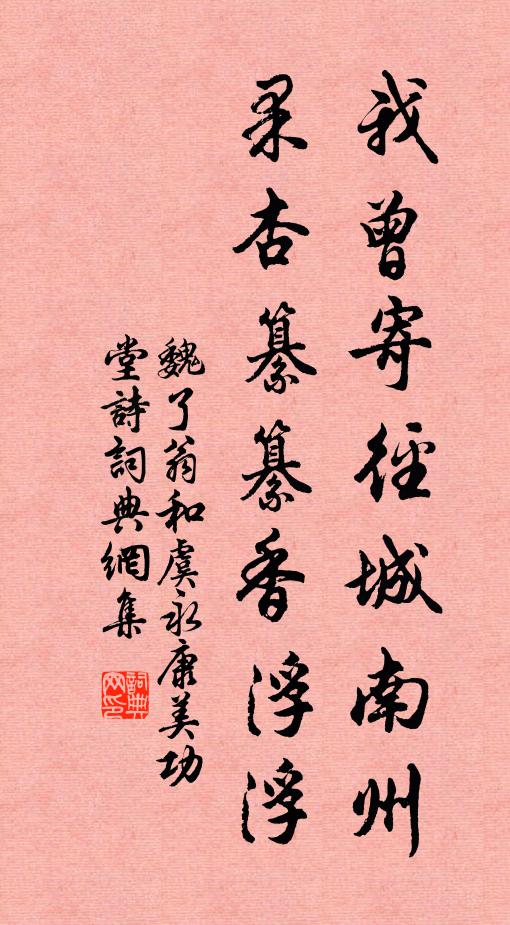 我曾寄徑城南州
果杏纂纂香浮浮
魏了翁和虞永康美功
堂詩詞典網集
詞典網印